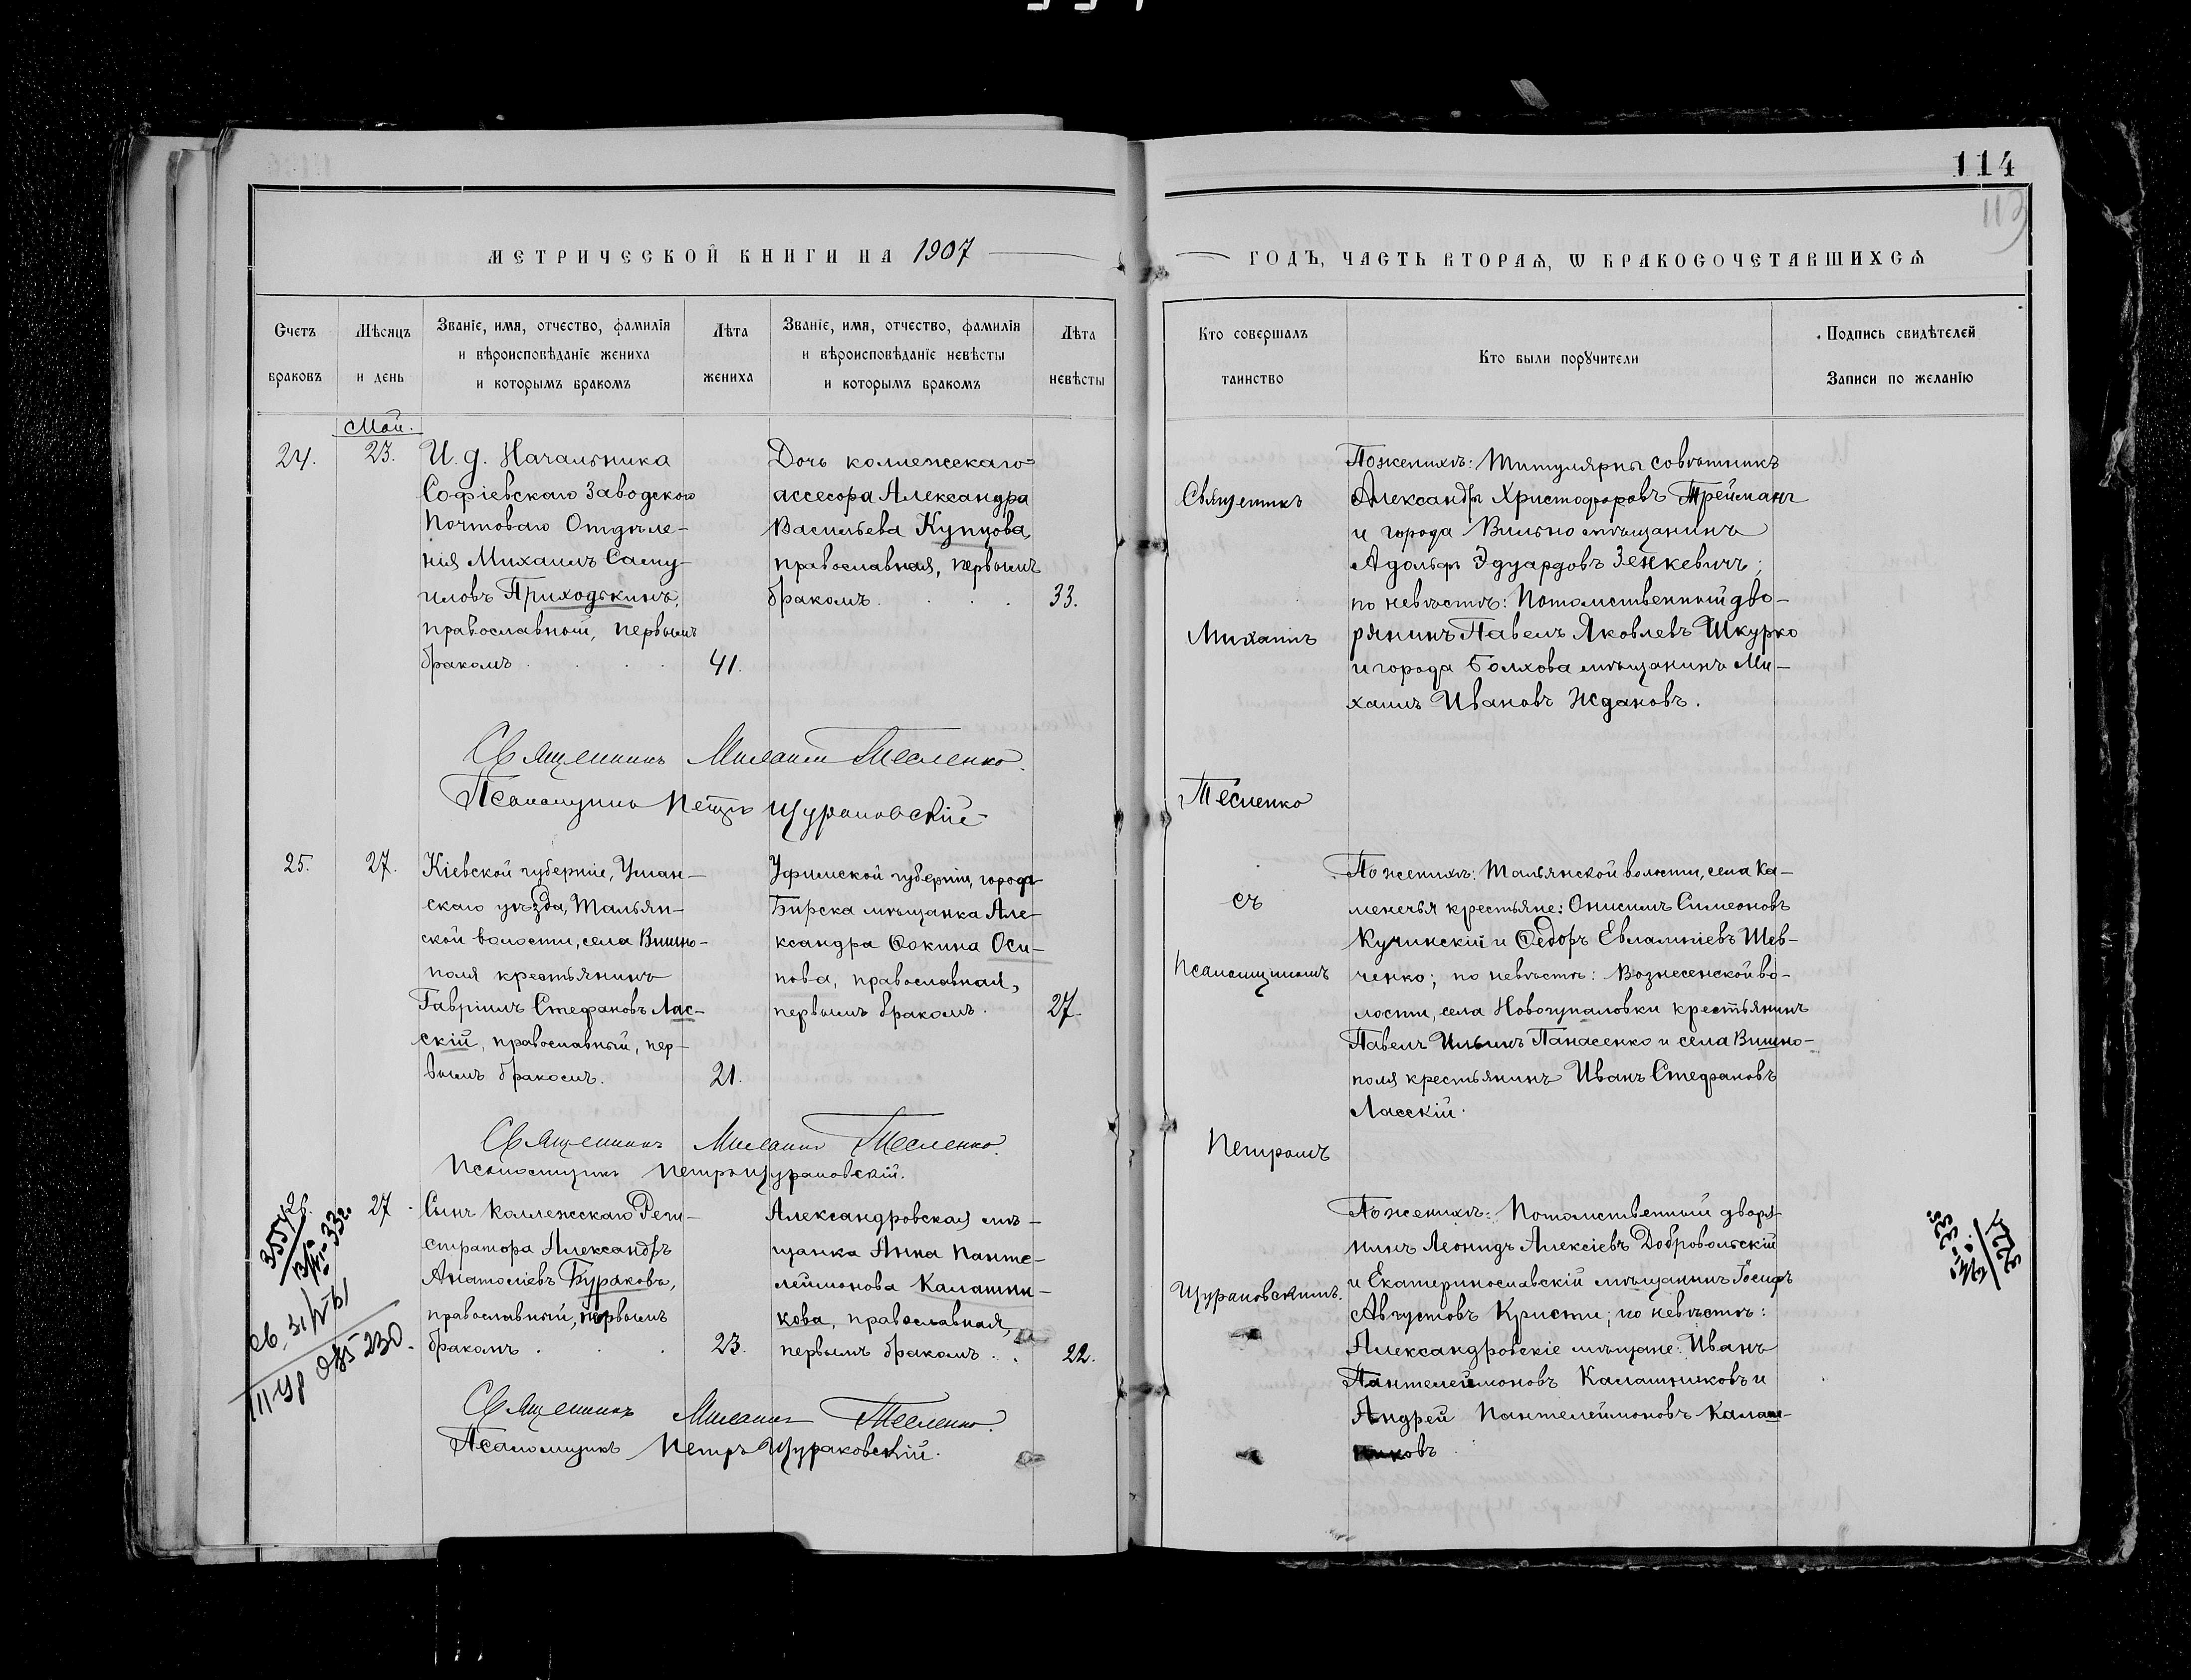 114
МЕТРИЧЕСКОЙ КНИГИ НА 1907
ГОДЪ, ЧАСТЬ ВТОРАѦ, Ѡ БРАКОСОЧЕТАВШИХСѦ
Счетъ
браковъ
Мѣсяцъ
и день
Званіе, имя, отчество, фамилія
и вѣроисповѣданіе жениха
и которымъ бракомъ
Лѣта
жениха
Званіе, имя, отчество, фамилія
и вѣроисповѣданіе невѣсты
и которымъ бракомъ
Лѣта
невѣсты
Кто совершалъ
таинство
Кто были порꙋчители
Подпись свидѣтелей
Записи по желанію
Май.
24.
23.
И. д. Начальника
Софіевскаго Заводского
Почтоваго Отдѣле-
нія Михаилъ Саму-
иловъ Приходькинъ,
православный, первымъ
бракомъ
41.
Дочь коллежскаго
ассесора Александра
Васильева Купцова,
православная, первымъ
бракомъ
33.
По женихѣ: Титулярны совѣтникъ
Александръ Христофоровъ Трейманъ
и города Вильно мѣщанинъ
Адольфъ Эдуардовъ Зенкевичъ;
по невѣстѣ: Потомственный дво-
рянинъ Павелъ Яковлевъ Шкурко
и города Болхова мѣщанинъ Ми-
хаилъ Ивановъ Ждановъ.
Священникъ Михаилъ Тесленко.
Псаломщикъ Петръ Щураковскій
25.
27.
Кіевской губерніи, Уман-
скаго уѣзда, Тальян-
ской волости, села Вишно-
поля крестьянинъ
Гавріилъ Стефановъ Лас-
скій, православный, пер-
вымъ бракомъ.
21.
Уфимской губерніи, города
Бирска мѣщанка Але-
ксандра Ѳокина Оси-
пова, православная,
первымъ бракомъ.
27.
По женихѣ: Тальянской волости, села Ка-
менечья крестьяне: Онисимъ Симеоновъ
Кучинскій и Ѳедоръ Евлампіевъ Шев-
ченко; по невѣстѣ: Вознесенской во-
лости, села Новогупаловки крестьянинъ
Павелъ Ильинъ Панасенко и села Вишно-
поля крестьянинъ Иванъ Стефановъ
Ласскій.
Священникъ Михаилъ Тесленко.
Псаломщикъ Петръ Щураковскій.
26.
27.
Сынъ Коллежскаго Реги-
стратора Александръ
Анатоліевъ Бураковъ,
православный, первымъ
бракомъ
23.
Александровская мѣ-
щанка Анна Панте-
леймонова Калашни-
кова, православная,
первымъ бракомъ
22.
По женихѣ: Потомственный дворя-
нинъ Леонидъ Алексіевъ Добровольскій
и Екатеринославскій мѣщанинъ Іосифъ
Августовъ Кристи; по невѣстѣ:
Александровскіе мѣщане: Иванъ
Пантелеймоновъ Калашниковъ и
Андрей Пантелеймоновъ Калаш-
никовъ
Священникъ Михаилъ Тесленко.
Псаломщикъ Петръ Щураковскій.
Священникъ
Михаилъ
Тесленко
съ
псаломщикомъ
Петромъ
Щураковскимъ.